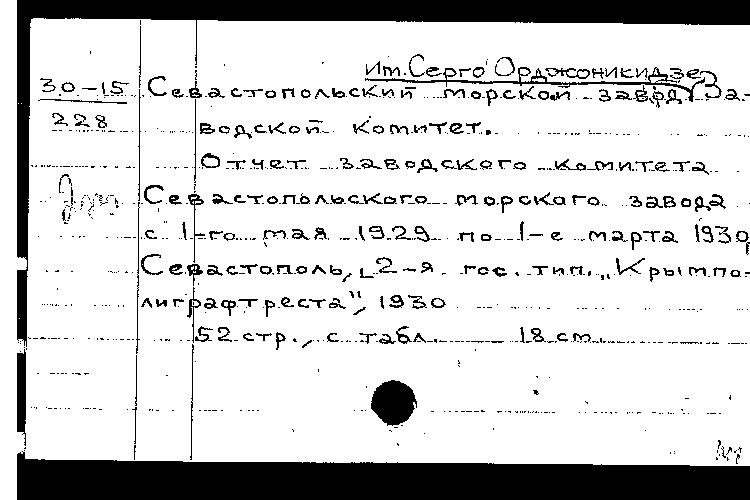 им. Серго Орджоникидзе
30-15 Севастопольский морской завод. За-
228 водской комитет.
Отчет заводского комитета
Севастопольского морскаго завода
с 1-го мая 1929 по 1-е марта 1930
Севастополь, 2-я гос. тип. „Крымпо-
лиграфтреста", 1930
52 стр., с табл. 18 см.